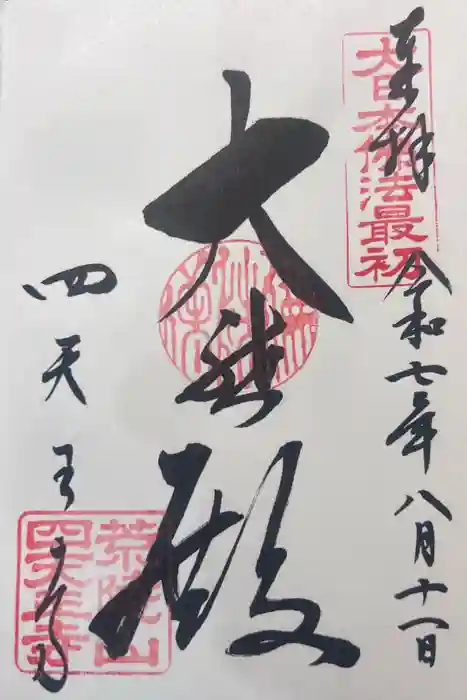 奉拝
大日本佛法最初
令和七年八月十一日
大悲殿
四天王寺
荒陵山
四天王寺